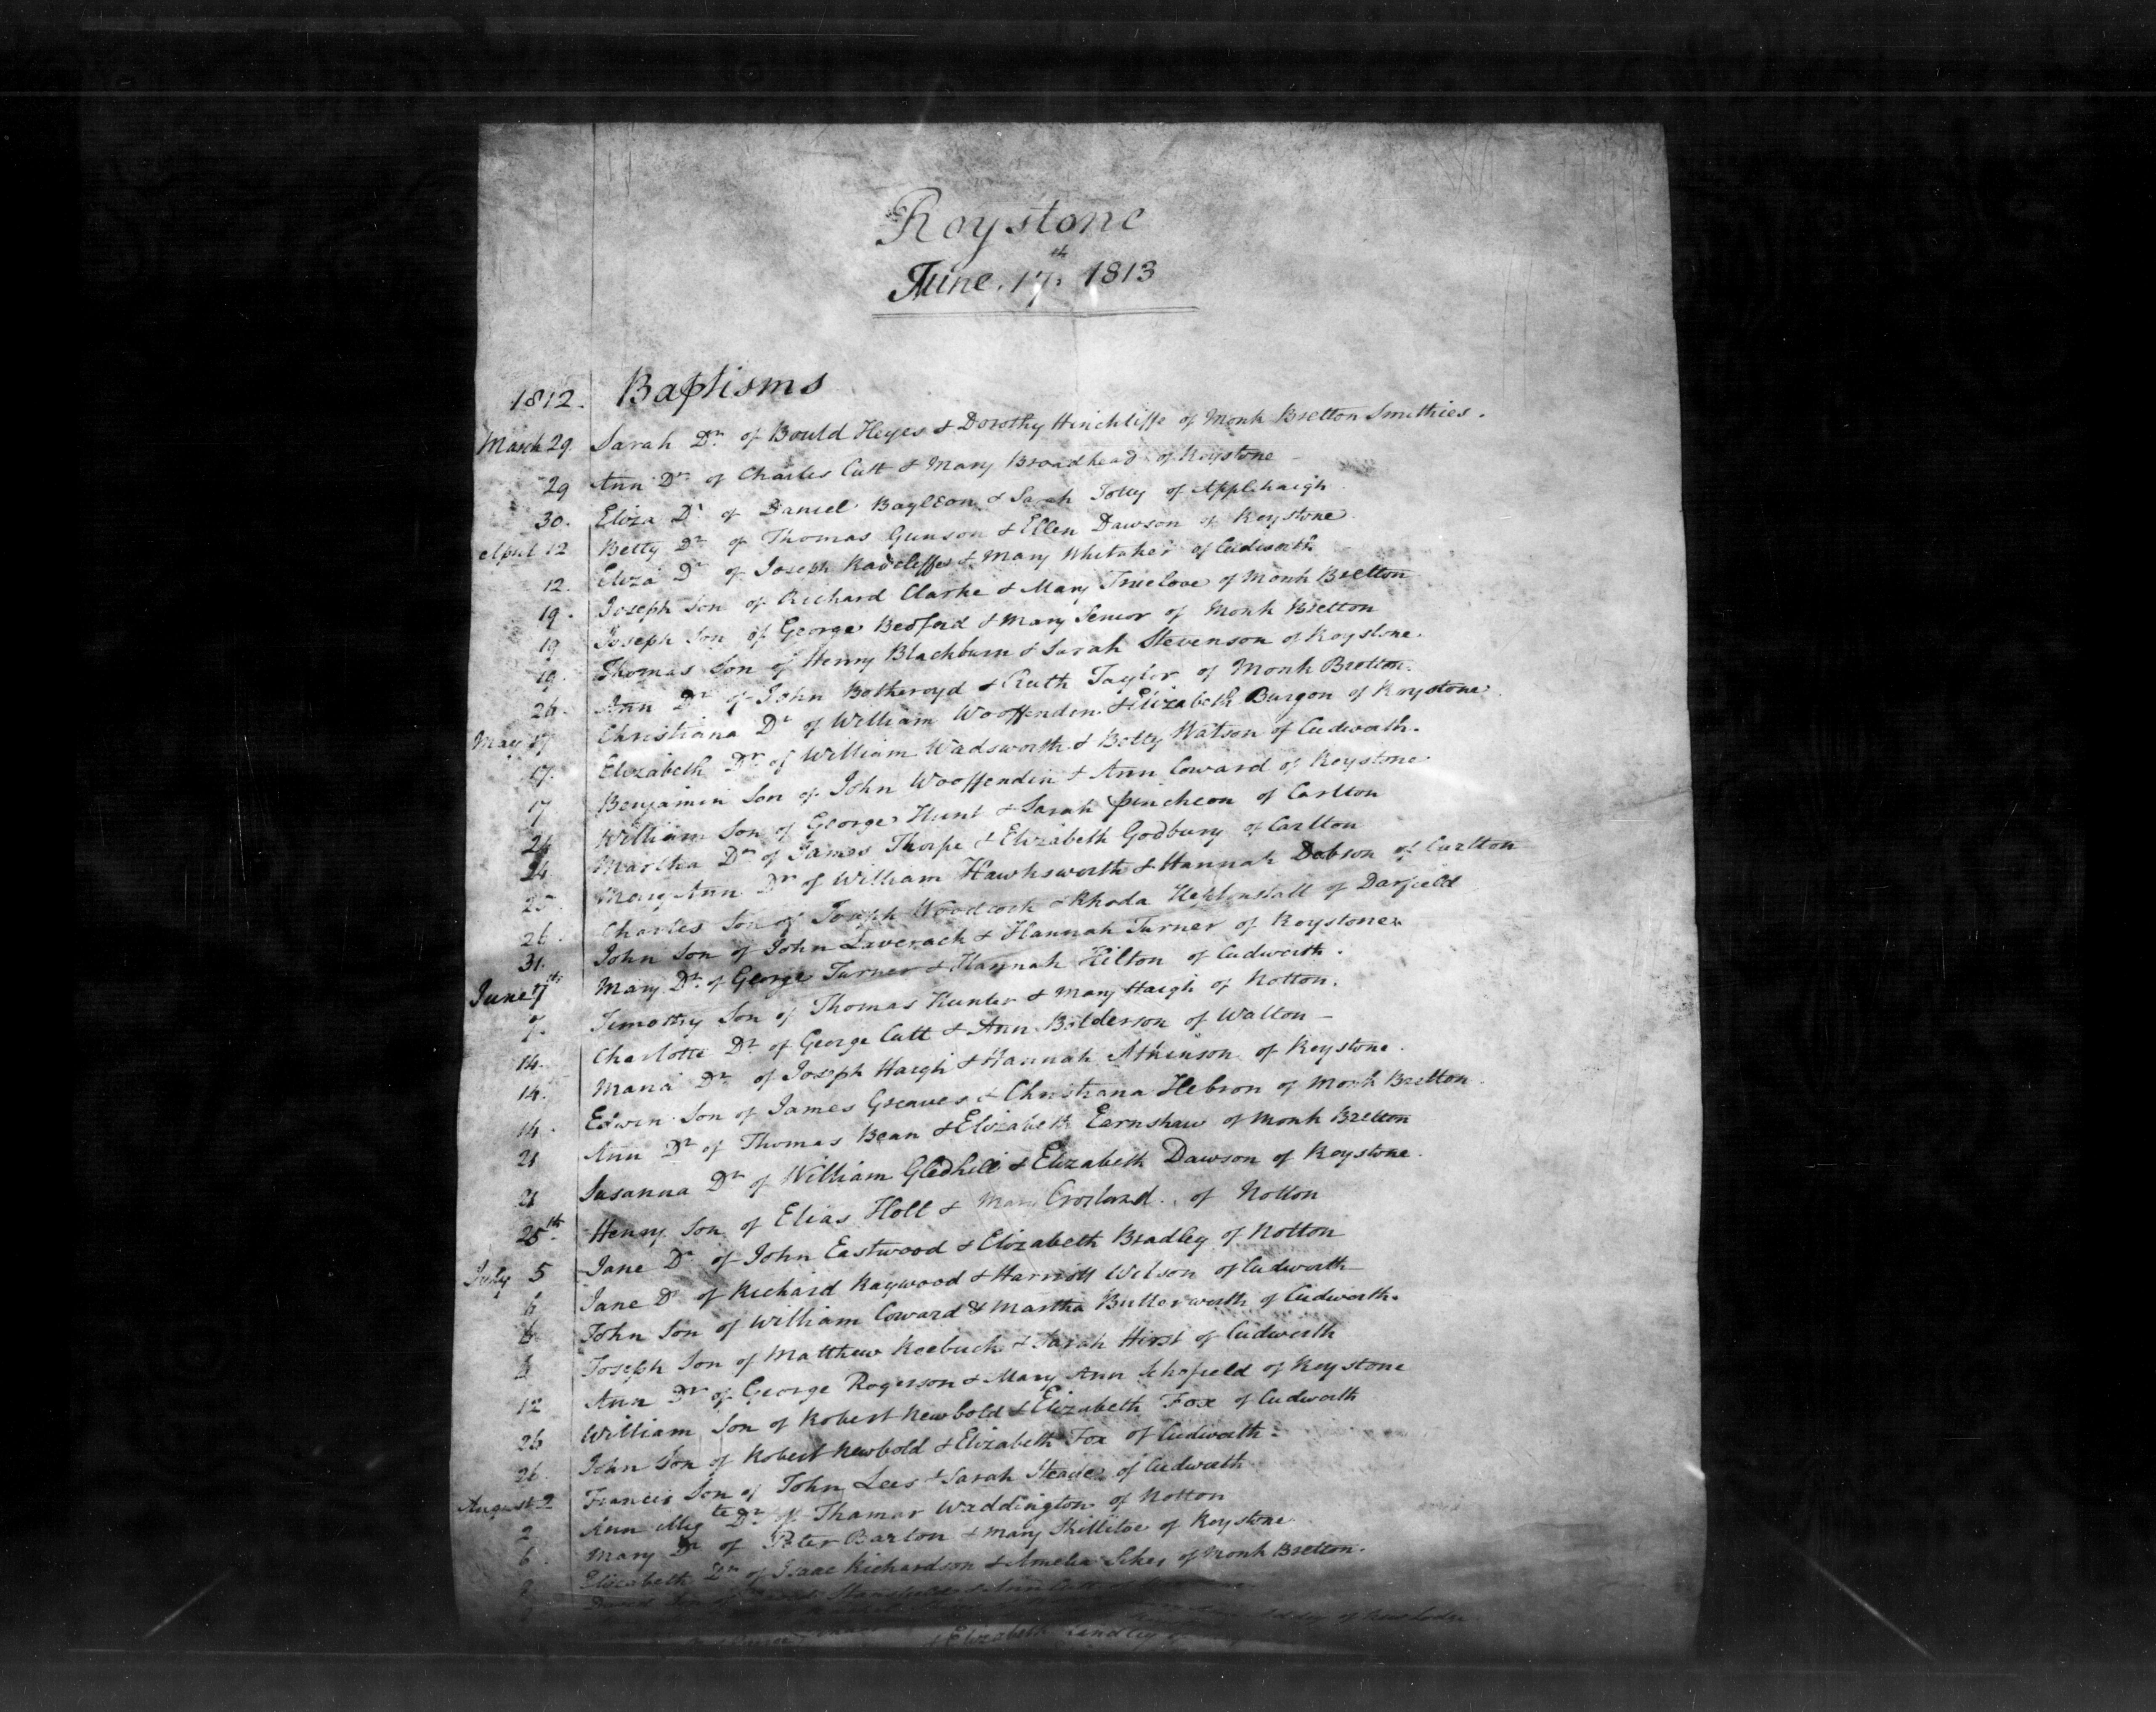 Roystone
June. 17th. 1813
1812. Baptisms
March 29. Sarah Dr. of Bould Heyes & Dorothy Hinchliffe of Monk Bretton Smithies.
29 Ann Dr. of Charles Cutt & Mary Broadhead of Roystone
30. Eliza Dr of Daniel Baylton & Sarah Totty of Applehaigh
April 12 Betty Dr. of Thomas Gunson & Ellen Dawson of Roystone
12. Eliza Dr of Joseph Radcliffe & Mary Whitaker of Cudworth
19. Joseph Son of Richard Clarke & Mary Truelove of Monk Bretton
19 Joseph Son of George Bedford & Mary Senior of Monk Bretton
19. Thomas Son of Henry Blackburn & Sarah Stevenson of Roystone.
26. Ann Dr of John Botheroyd & Ruth Taylor of Monk Bretton.
May 17 Christiana Dr of William Wooffenden & Elizabeth Burgon of Roystone.
17. Elizabeth Dr. of William Wadsworth & Betty Watson of Cudworth.
17 Benjamin Son of John Wooffendin & Ann Coward of Roystone
24 William Son of George Hunt & Sarah pincheon of Carlton
24 Martha Dr of James Thorpe & Elizabeth Godbury of Carlton
25. Mary Ann Dr of William Hawksworth & Hannah Dobson of Carlton
26. Charles Son of Joseph Woodcock & Rhoda Heptinstall of Darfield
31. John Son of John Laverack & Hannah Turner of Roystone
June 7th Mary Dr. of George Turner & Hannah Hilton of Cudworth.
7. Timothy Son of Thomas Hunter & Mary Haigh of Notton.
14. Charlotte Dr of George Cutt & Ann Bilderson of Walton -
14. Maria Dr of Joseph Haigh & Hannah Atkinson of Roystone.
14. Edwin Son of James Greaves & Christiana Hebron of Monk Bretton.
21 Ann Dr of Thomas Bean & Elizabeth Earnshaw of Monk Bretton
21 Susanna Dr of William Gledhill & Elizabeth Dawson of Roystone.
25th. Henry Son of Elias Holl & Mary Crosland of Notton
July 5 Jane Dr of John Eastwood & Elizabeth Bradley of Notton
6 Jane Dr of Richard Raywood & Harriott Wilson of Cudworth
John Son of William Coward & Martha Butterworth of Cudworth.
Joseph Son of Matthew Roebuck & Sarah Hirst of Cudworth
12 Ann Dr of George Rogerson & Mary Ann Schofield of Roystone
26 William Son of Robert Newbold & Elizabeth Fox of Cudworth
26. John Son of Robert Newbold & Elizabeth Fox of Cudworth.
August 2 Francis Son of John Lees & Sarah Steade of Cudworth
2 Ann illegte Dr of Thamar Waddington of Notton
6. Mary Dr of Peter Barton & Mary Skillitoe of Roystone.
Elizabeth Dr of Isaac Richardson & Amelia Sikes of Monk Bretton.
Son of & Ann
& Elizabeth Lindley of